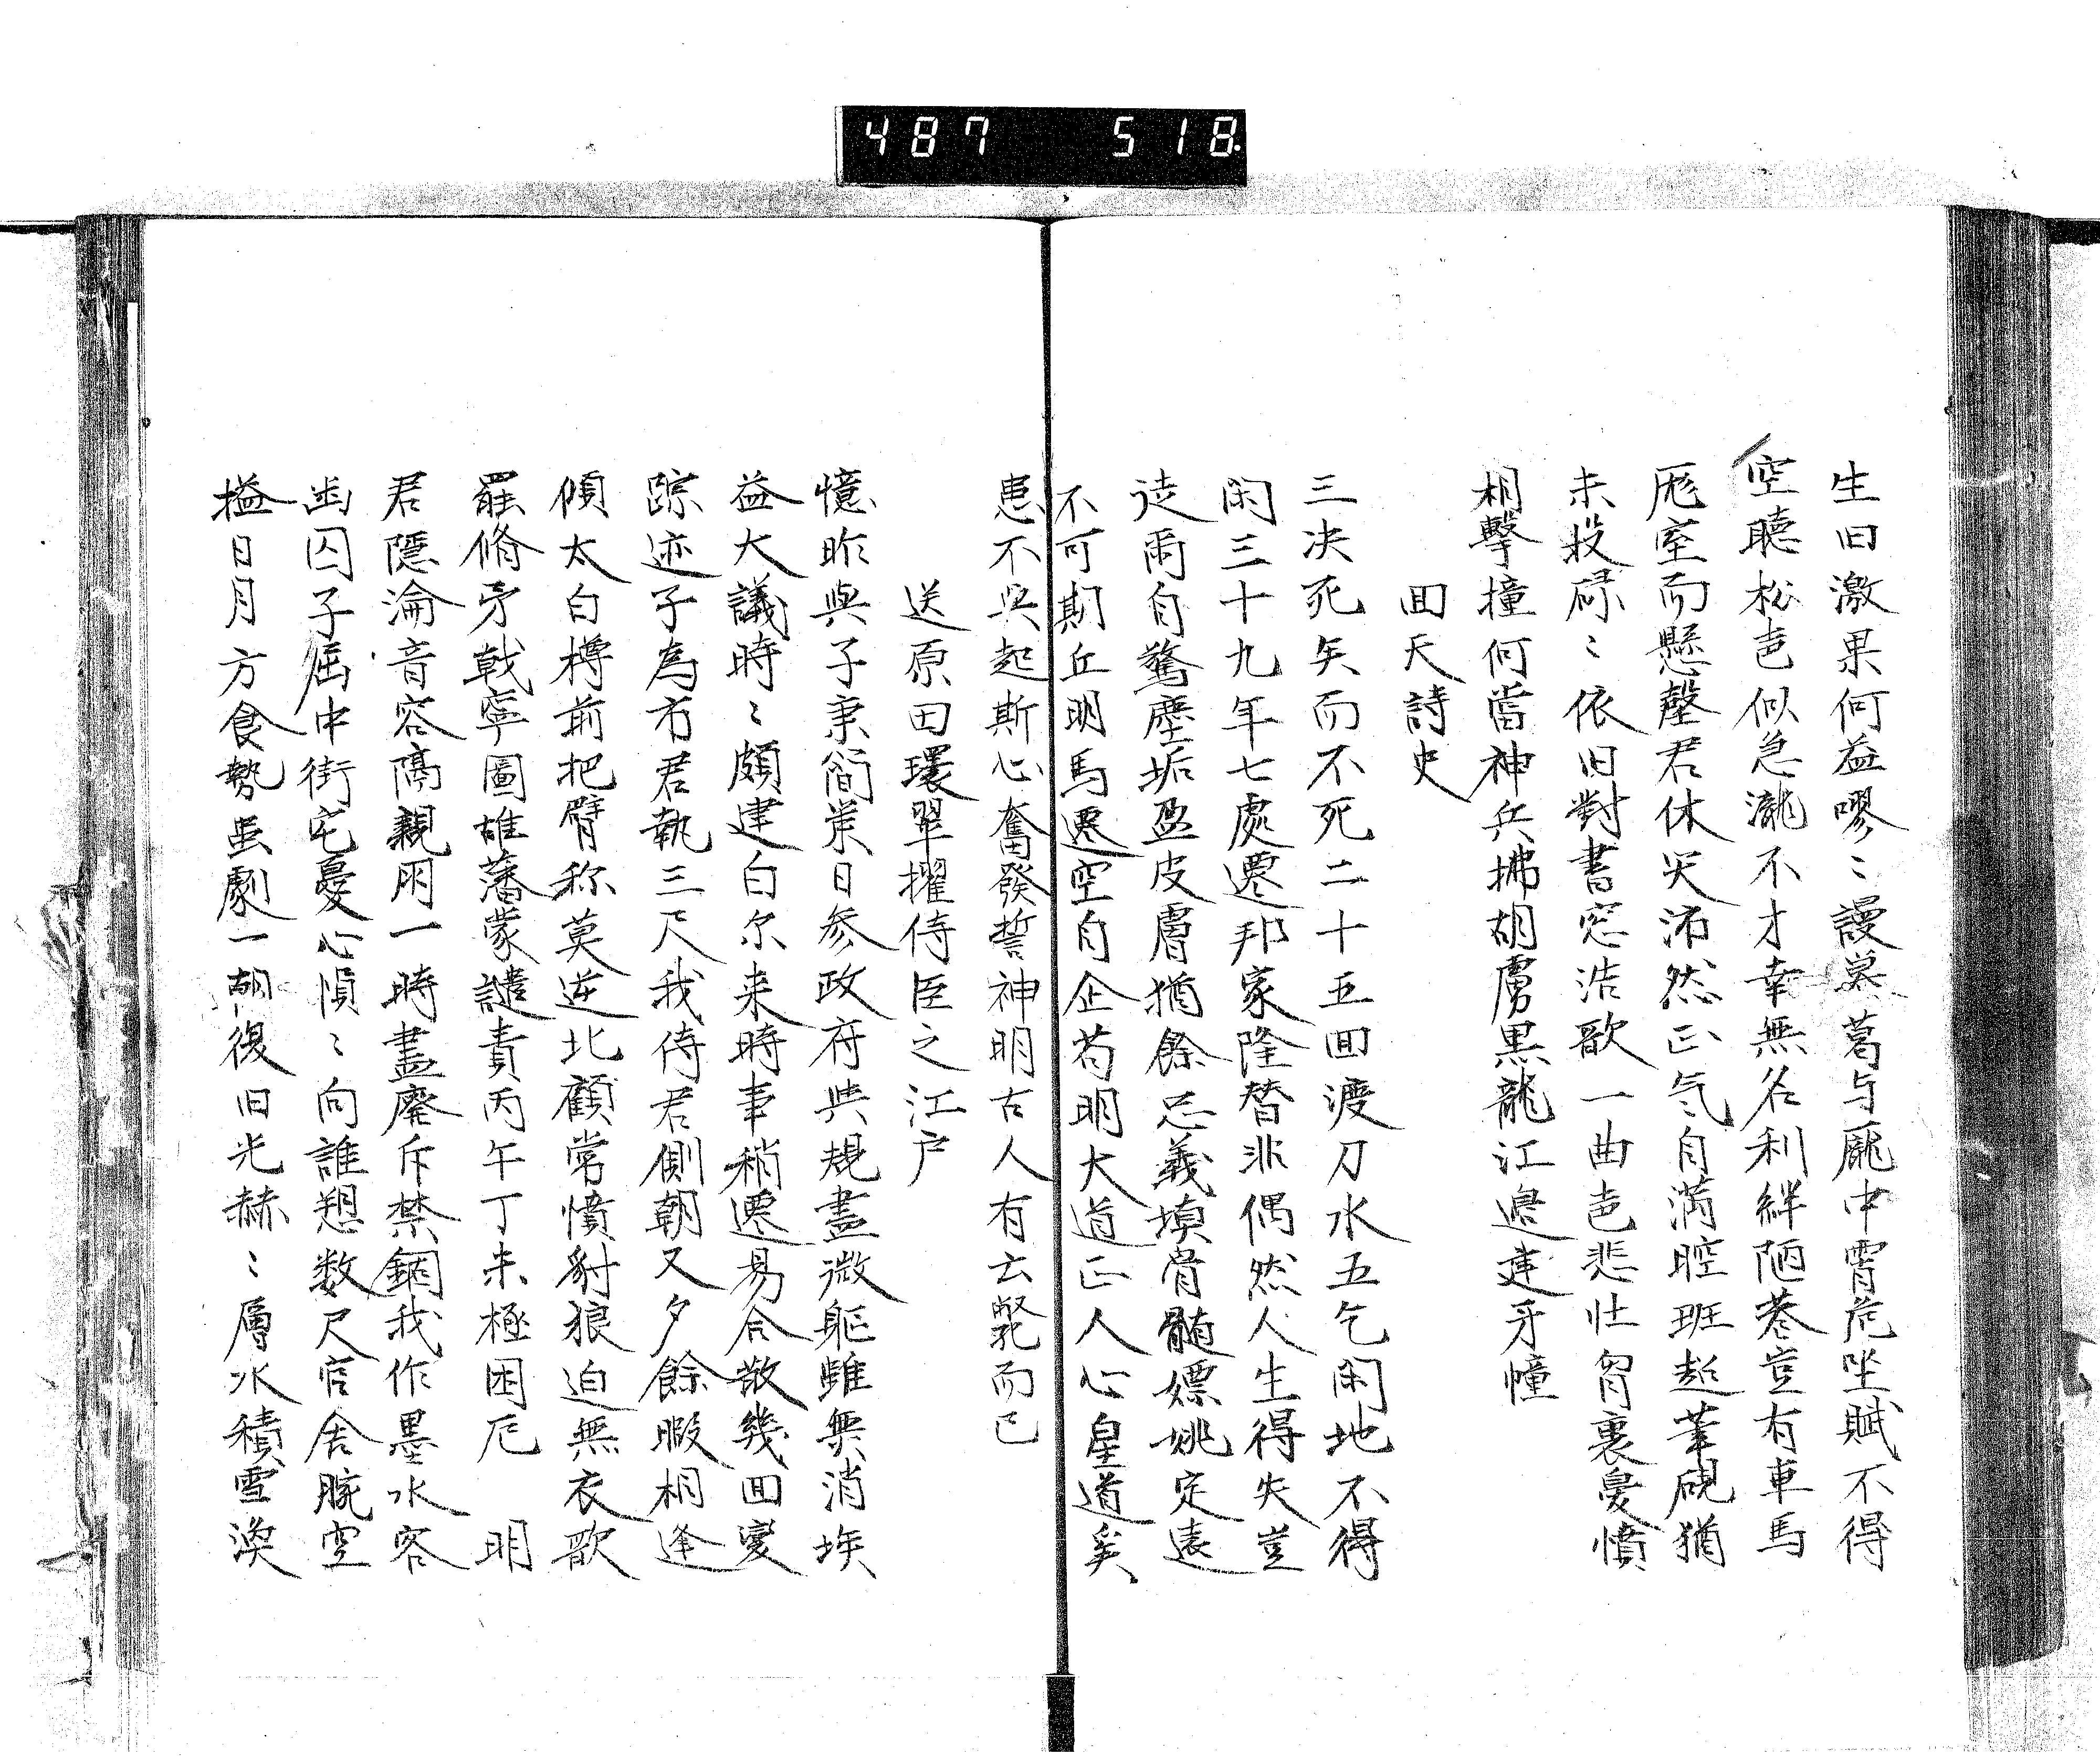 487 518
生旧激果何益嘐〻謾慕葛与龐中宵危坐賦不得
空聴松声似急瀧不才幸無名利絆陋巷豈有車馬
厖室而懸罄君休笑沛然正気自満腔班超筆硯猶
未投碌〻依旧對書窓浩歌一曲声悲壮胷裏憂憤
相撃撞何當神兵拂胡虜黒龍江邉建牙幢
回天詩史
三决死矣而不死二十五回渡刀水五乞閑地不得
閑三十九年七處遷邦家隆替非偶然人生得失豈
徒爾自驚塵垢盈皮膚猶餘忠義填骨髄嫖姚定遠
不可期丘明馬遷空自企苟明大道正人心皇道奚
患不興起斯心奮發誓神明古人有云斃而已
送原田環翠擢侍臣之江戸
憶昨與子秉簡策日参政府典規畫微躯雖無消埃
益大議時〻頗建白尓来時事稍遷易合散幾回変
踪迹子為市君執三尺我侍君側朝又夕餘暇相逢
傾太白樽前把臂称莫逆北顧常憤豺狼迫無衣歌
罷脩矛戟寧圖雄藩蒙譴責丙午丁未極困厄　明
君隠淪音容隔親朋一時盡廢斥禁錮我作墨水客
幽囚子屈中街宅憂心愼〻向誰愬数尺官舎腕空
搤日月方食勢虽劇一朝復旧光赫〻層氷積雪渙